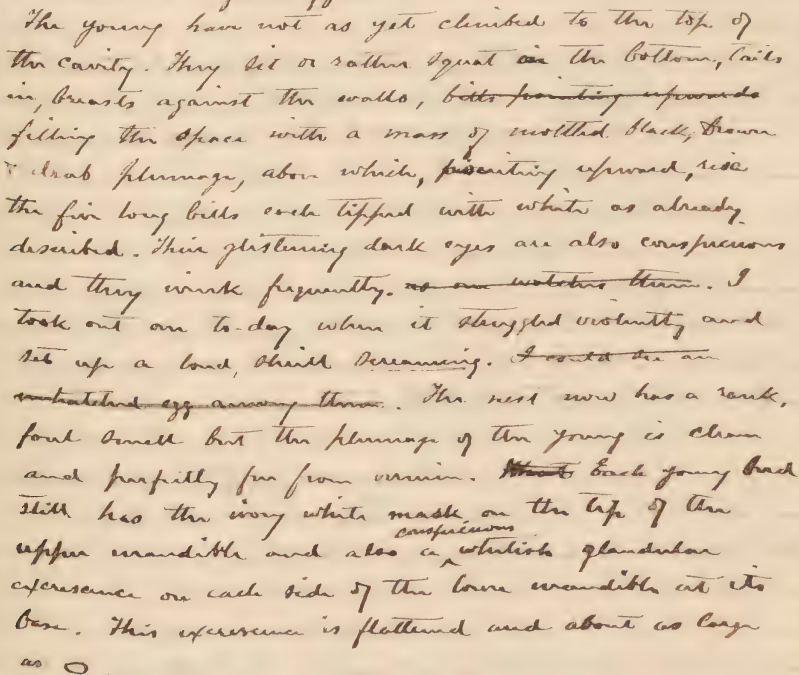 The young have not as yet climbed to the top of
the cavity. They sit or rather squat in the bottom, tails
in, breasts against the walls, bills pointing upwards
filling the space with a mass of mottled black, brown
& drab plumage, above which, pointing upward, rise
the five long bills each tipped with white as already
described. Their glistening dark eyes are also conspicuous
and they wink frequently. as one watches them. I
took out one to-day when it struggled violently and
set up a loud, shrill screaming. I could see an
unhatched egg among them. The nest now has a rank,
foul smell but the plumage of the young is clean
and perfectly free from vermin. Each young bird
still has the ivory white mask on the top of the
upper mandible and also a conspicuous whitish glandular
excresence on each side of the lower mandible at its
base. This excresence is flattened and about as large
as